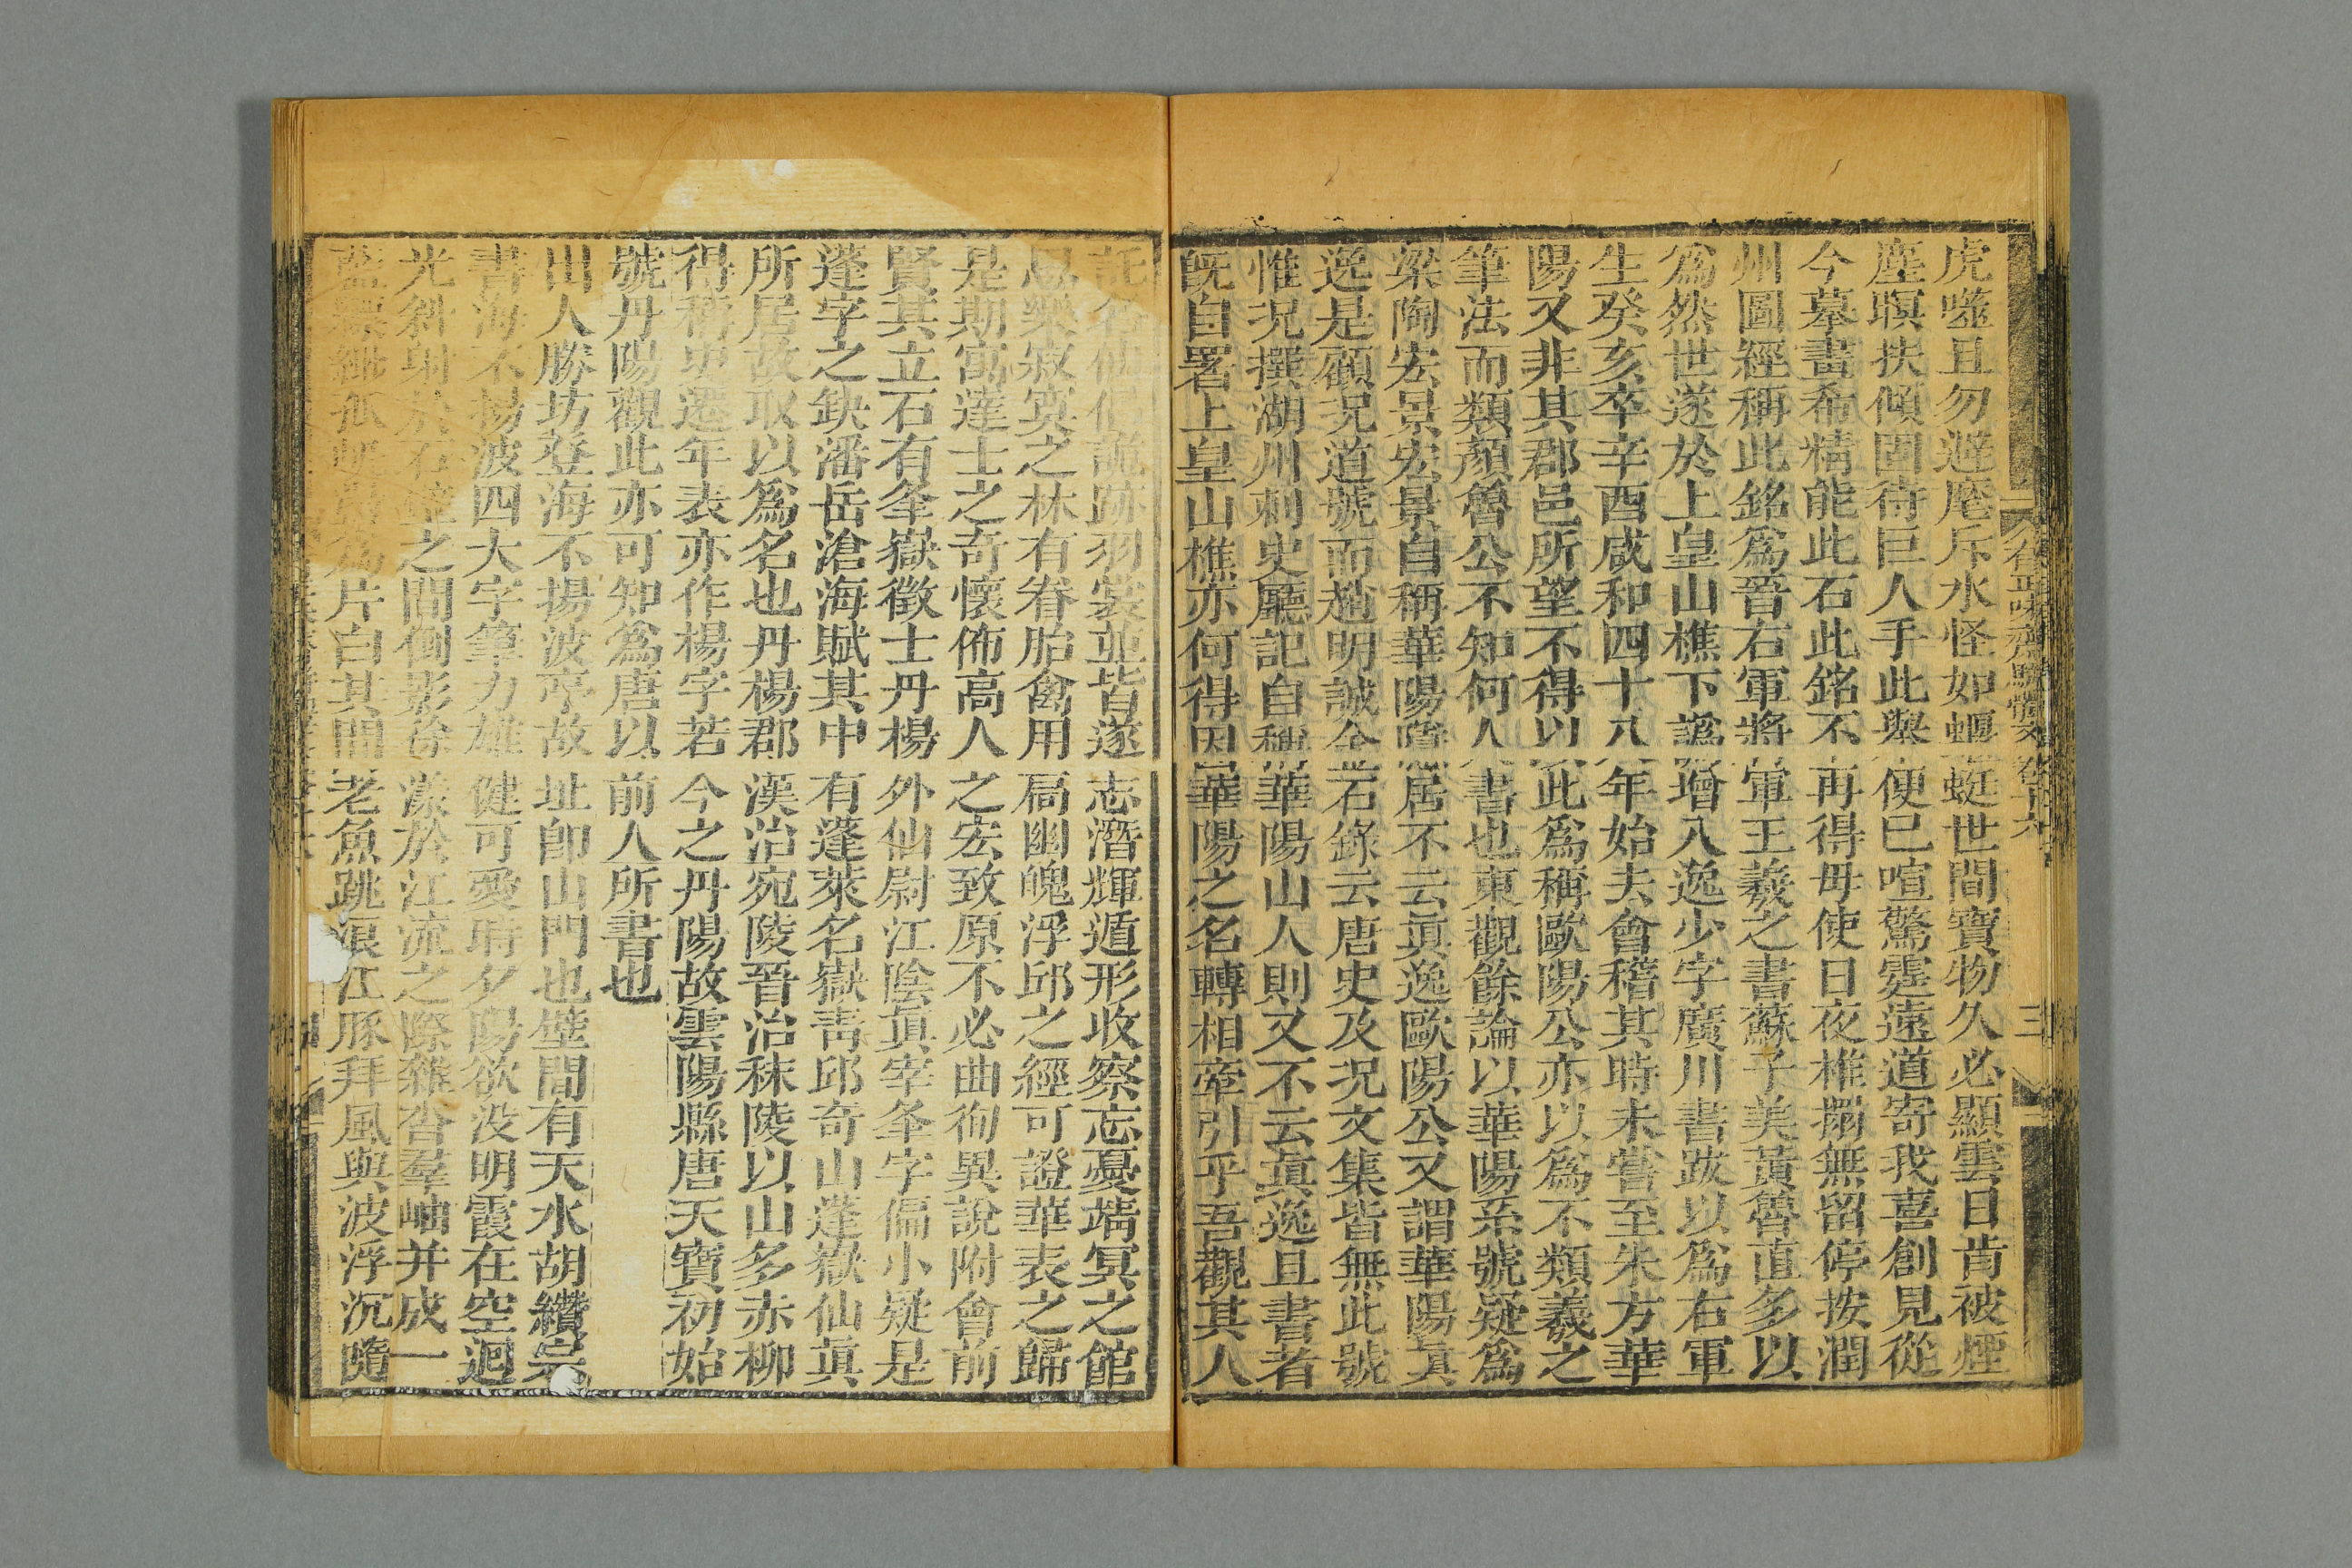 有正味齋駢體文 卷十六 三
虎噬且勿避麾斥水怪如蝘蜓世間寶物久必顯雲日肯被煙
塵暝扶傾固待巨人手此與便已喧驚霆遠道寄我喜創見從
今摹畫希精能此石此銘不再得毋使日夜椎搨無留停按潤
州圖經稱此銘爲晉右軍將軍王羲之書蘇子美黃魯直多以
爲然世遂於上皇山樵下譌增入逸少字廣川書跋以爲右軍
生癸亥卒辛酉咸和四十八年始去會稽其時未嘗至朱方華
陽又非其郡邑所望不得以此爲稱歐陽公亦以爲不類羲之
筆法而類顏魯公不知何人書也東觀餘論以華陽系號疑爲
梁陶宏景宏景自稱華陽隱居不云眞逸歐陽公又謂華陽眞
逸是顧况道號而趙明誠金石錄云唐史及况文集皆無此號
惟况撰湖州刺史廳記自稱華陽山人則又不云眞逸且書者
旣自署上皇山樵亦何得因華陽之名轉相牽引乎吾觀其人
託名仙侶詭跡羽裳並皆遂志潛輝遁形收察忘憂端冥之館
息樂寂寞之林有眷胎禽用局幽魄浮邱之經可證華表之歸
是期寓達士之奇懷佈高人之宏致原不必曲徇異說附會前
賢其立石有夆嶽徵士丹楊外仙尉江陰眞宰夆字偏小疑是
蓬字之缺潘岳滄海賦其中有蓬萊名嶽靑邱奇山蓬嶽仙眞
所居故取以爲名也丹楊郡漢治宛陵晉治秣陵以山多赤柳
得稱史遷年表亦作楊字若今之丹陽故雲陽縣唐天寶初始
號丹陽觀此亦可知爲唐以前人所書也
出人勝坊登海不揚波亭故址卽山門也壁間有天水胡纘宗
書海不揚波四大字筆力雄健可愛時夕陽欲没明霞在空迴
光斜射於石壁之間倒影徐漾於江流之際雜沓羣岫并成一
孤 爲片白其間老魚跳浪江豚拜風與波浮沉隨